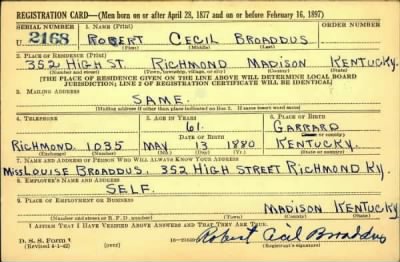 REGISTRATION CARD—(Men born on or after April 28, 1877 and on or before February 16, 1897)
SERIAL NUMBER 1. NAME (Print) ORDER NUMBER
U 2168 ROBERT CECIL BROADDUS
(First) (Middle) (Last)
2. PLACE OF RESIDENCE (Print)
352 HIGH ST. RICHMOND MADISON KENTUCKY.
(Number and street) (Town, township, village, or city) (County) (State)
[THE PLACE OF RESIDENCE GIVEN ON THE LINE ABOVE WILL DETERMINE LOCAL BOARD
JURISDICTION; LINE 2 OF REGISTRATION CERTIFICATE WILL BE IDENTICAL]
3. MAILING ADDRESS
SAME.
[Mailing address if other than place indicated on line 2. If same insert word same]
4. TELEPHONE 5. AGE IN YEARS 6. PLACE OF BIRTH
61. GARRARD
DATE OF BIRTH (Town or county)
RICHMOND 1035 MAY 13 1880 KENTUCKY.
(Exchange) (Number) (Mo.) (Day) (Yr.) (State or country)
7. NAME AND ADDRESS OF PERSON WHO WILL ALWAYS KNOW YOUR ADDRESS
MISS LOUISE BROADDUS, 352 HIGH STREET RICHMOND KY.
8. EMPLOYER'S NAME AND ADDRESS
SELF.
9. PLACE OF EMPLOYMENT OR BUSINESS
MADISON KENTUCKY
(Number and street or R. F. D. number) (Town) (County) (State)
I AFFIRM THAT I HAVE VERIFIED ABOVE ANSWERS AND THAT THEY ARE TRUE.
D. S. S. Form 1
(Revised 4-1-42) (over) Robert Cecil Broaddus
(Registrant's signature)